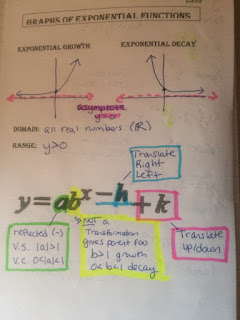 GRAPHS OF EXPONENTIAL FUNCTIONS
EXPONENTIAL GROWTH
EXPONENTIAL DECAY
asymptote
y=0
DOMAIN: all real numbers (ℝ)
RANGE: y>0
Translate
Right
Left
y = ab^x-h + k
reflected (-)
V.S. |a|>1
V.C. 0<|a|<1
NOT a
Transformation
gives parent fxn
b>1 growth
0<b<1 decay
Translate
up/down